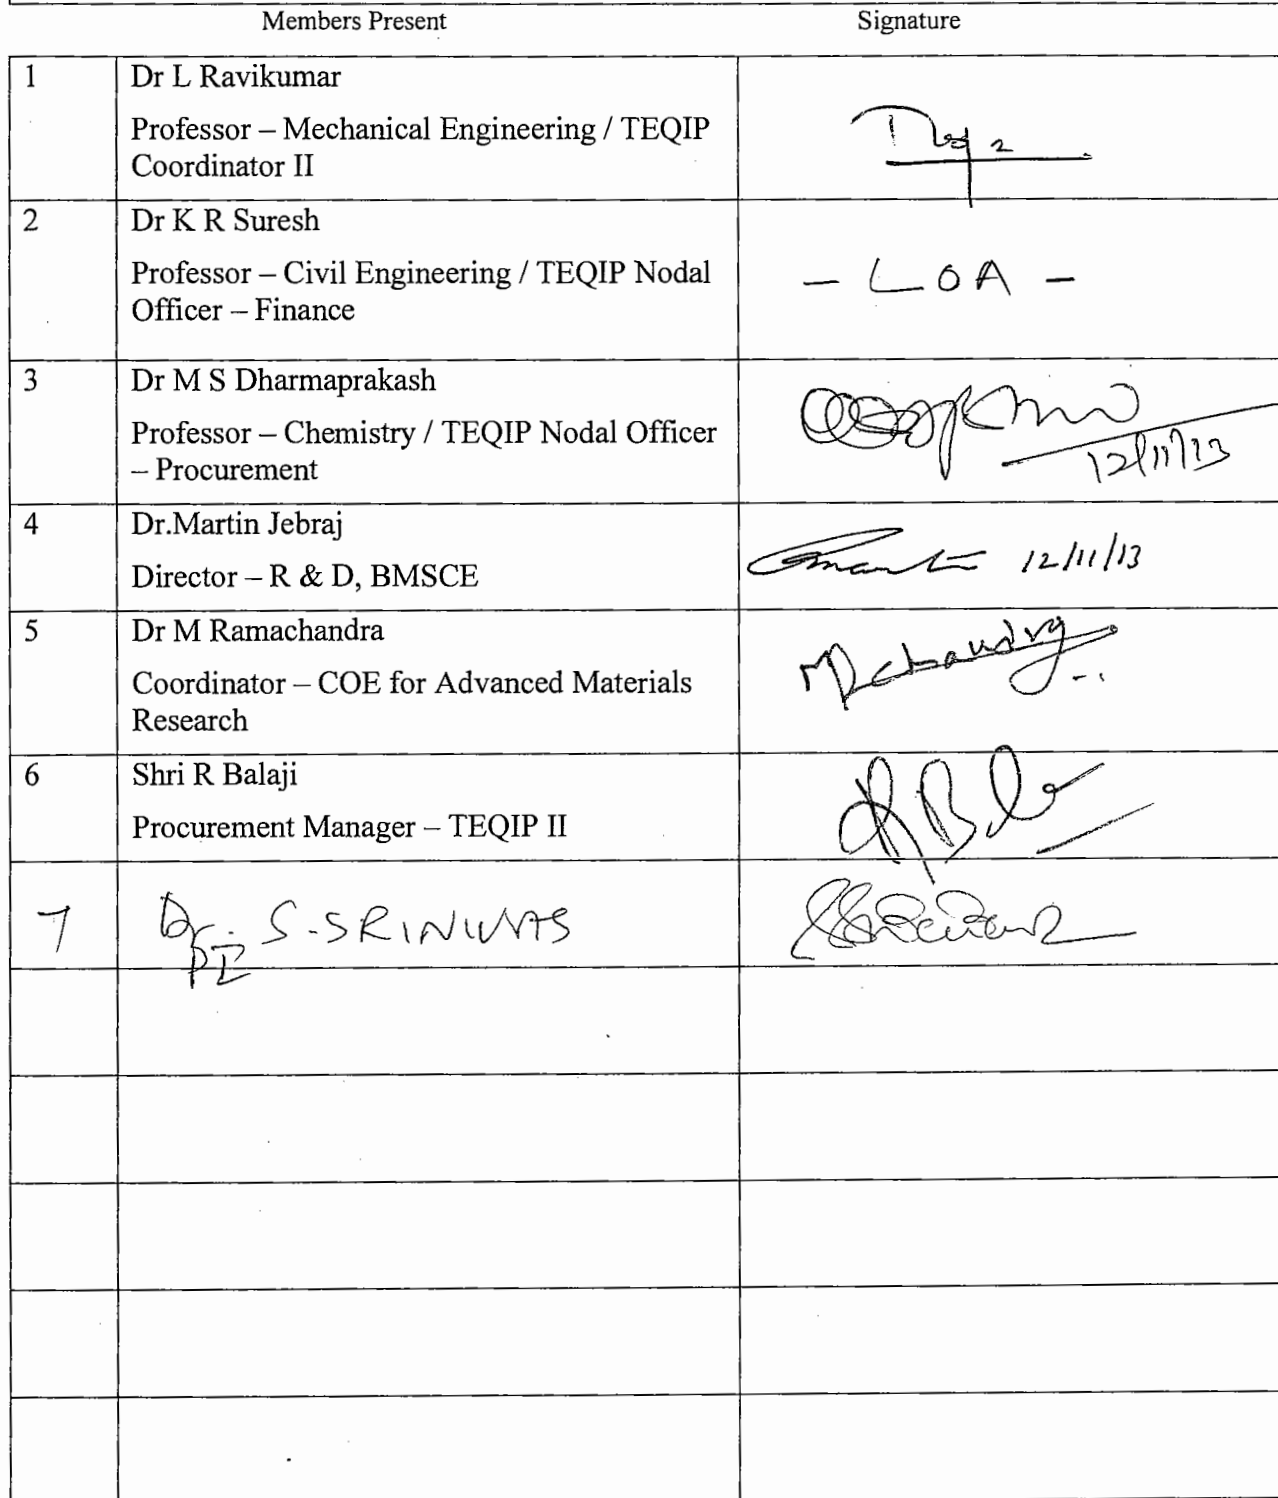 Members Present Signature
1 Dr L Ravikumar
Professor – Mechanical Engineering / TEQIP
Coordinator II
2 Dr K R Suresh
Professor – Civil Engineering / TEQIP Nodal
Officer – Finance
– LOA –
3 Dr M S Dharmaprakash
Professor – Chemistry / TEQIP Nodal Officer
– Procurement
12/11/13
4 Dr.Martin Jebraj
Director – R & D, BMSCE
12/11/13
5 Dr M Ramachandra
Coordinator – COE for Advanced Materials
Research
6 Shri R Balaji
Procurement Manager – TEQIP II
7 Dr. S. SRINIVAS